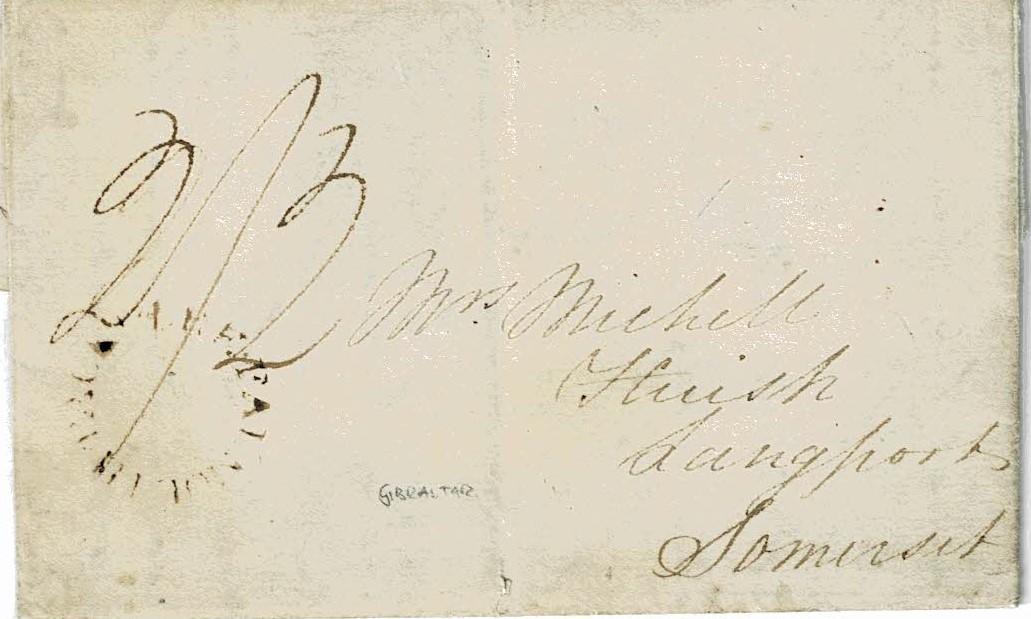 2/2
Mrs Michell
Huish
Langport
Somerset
GIBRALTAR